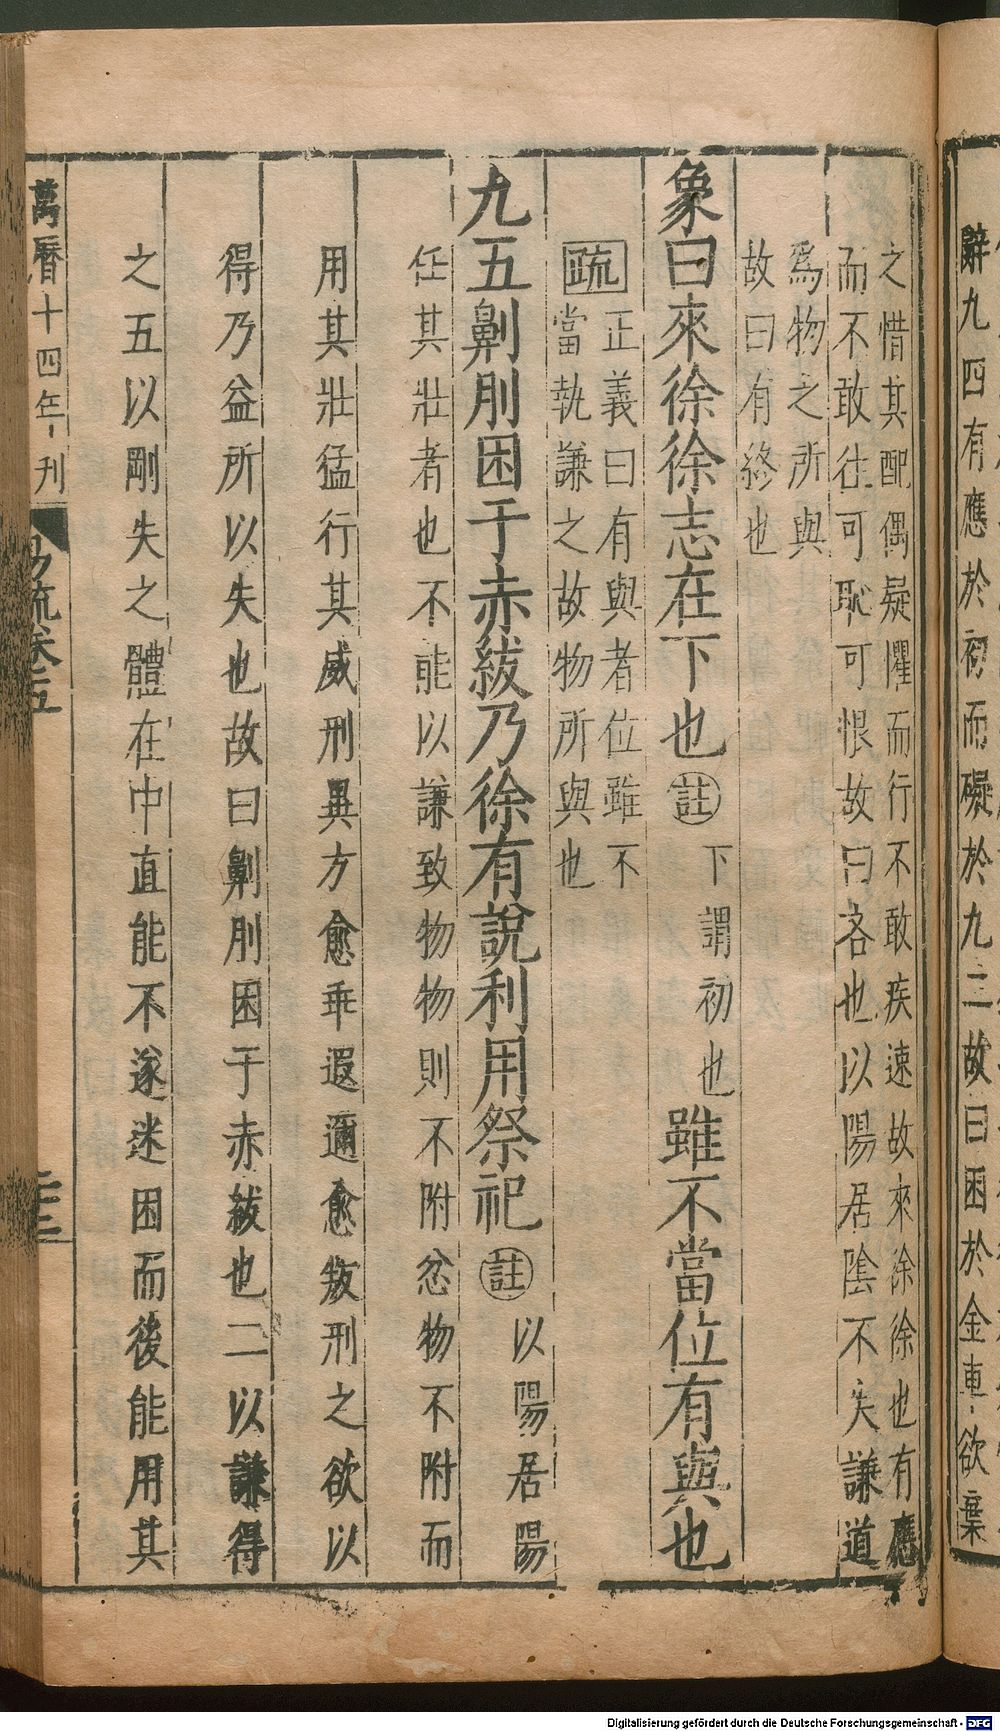 辭九四有應於初而礙於九二故曰困於金車欲棄
之惜其配偶疑懼而行不敢疾速故來徐徐也有應
而不敢往可恥可恨故曰吝也以陽居陰不失謙道
爲物之所與
故曰有終也
象曰來徐徐志在下也註下謂初也雖不當位有與也
疏正義曰有與者位雖不
當執謙之故物所與也
九五劓刖困于赤紱乃徐有說利用祭祀註以陽居陽
任其壯者也不能以謙致物物則不附忿物不附而
用其壯猛行其威刑異方愈乖遐邇愈叛刑之欲以
得乃益所以失也故曰劓刖困于赤紱也二以謙得
之五以剛失之體在中直能不遂迷困而後能用其
萬曆十四年刊
易疏卷五
二十三
Digitalisierung gefördert durch die Deutsche Forschungsgemeinschaft - DFG